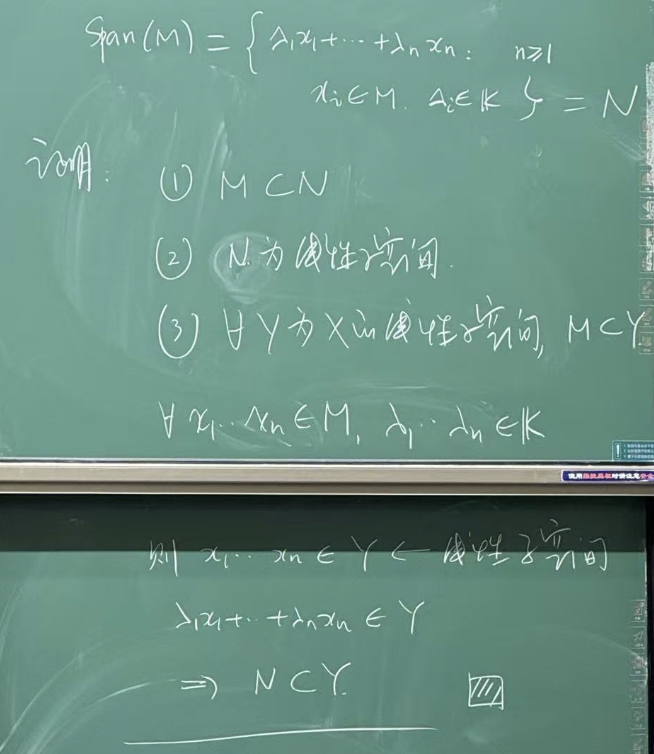 Span(M) = { λ₁x₁+⋯+λₙxₙ : n≥1
xᵢ∈M. λᵢ∈𝕂 } = N
证明:
① M⊂N
② N为线性子空间.
③ ∀Y为X的线性子空间, M⊂Y
∀x₁⋯xₙ∈M, λ₁⋯λₙ∈𝕂
则 x₁⋯xₙ∈Y ← 线性子空间
λ₁x₁+⋯+λₙxₙ∈Y
⇒ N⊂Y.